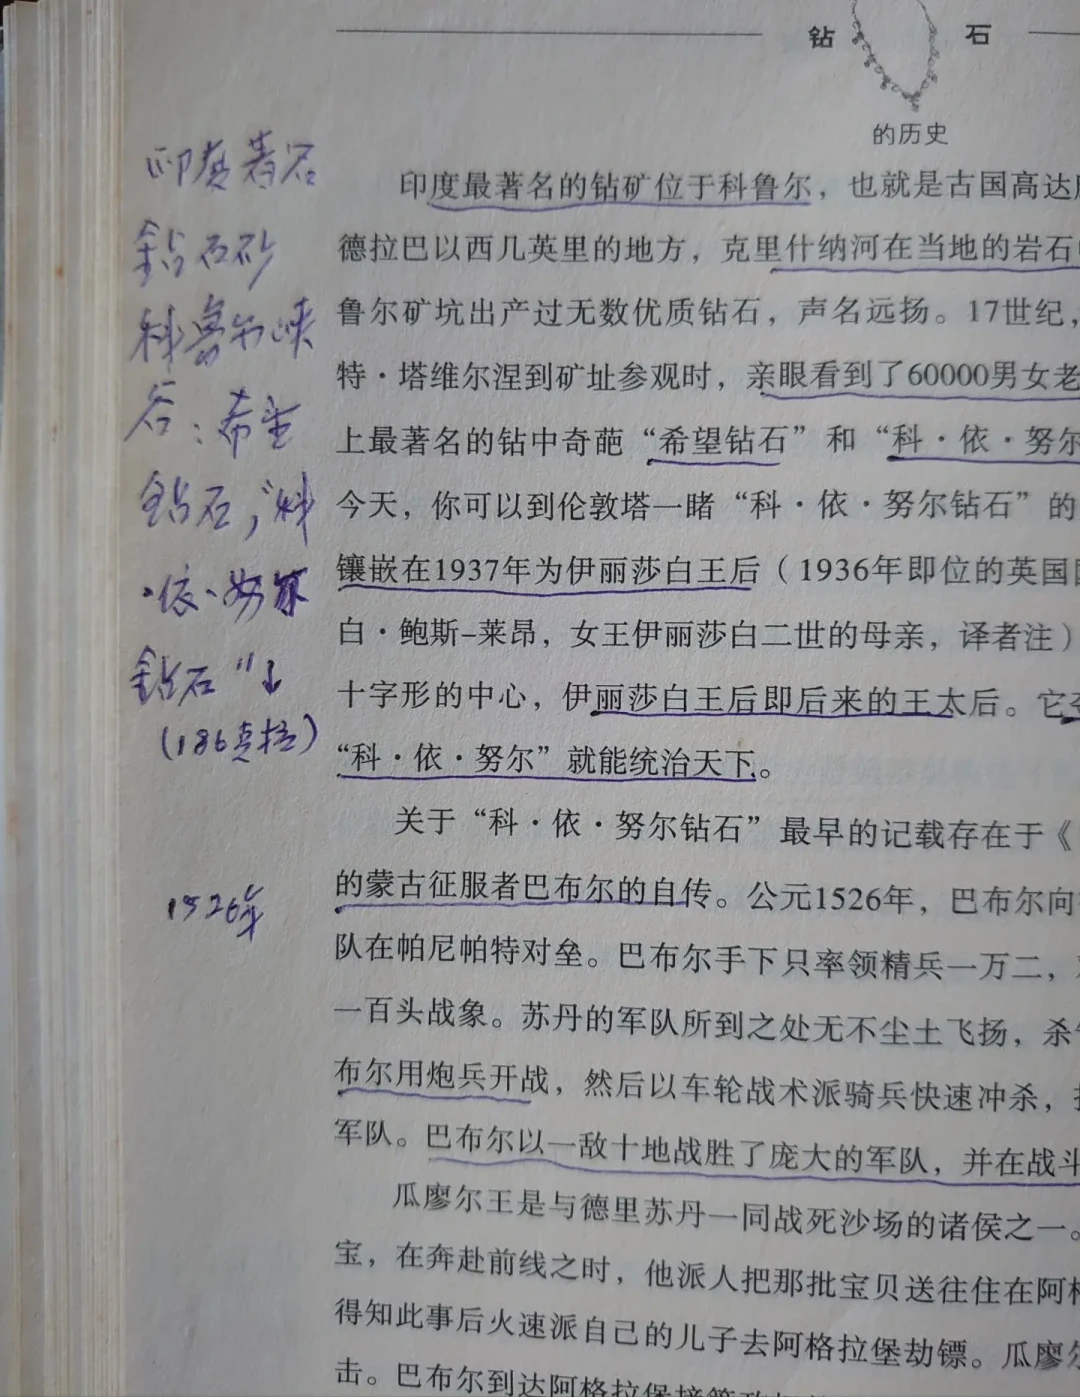 钻 石
的历史
印度最著名的钻矿位于科鲁尔，也就是古国高达
德拉巴以西几英里的地方，克里什纳河在当地的岩石
鲁尔矿坑出产过无数优质钻石，声名远扬。17世纪，
特·塔维尔涅到矿址参观时，亲眼看到了60000男女老
上最著名的钻中奇葩“希望钻石”和“科·依·努尔
今天，你可以到伦敦塔一睹“科·依·努尔钻石”的
镶嵌在1937年为伊丽莎白王后（1936年即位的英国
白·鲍斯-莱昂，女王伊丽莎白二世的母亲，译者注）
十字形的中心，伊丽莎白王后即后来的王太后。它
“科·依·努尔”就能统治天下。
关于“科·依·努尔钻石”最早的记载存在于《
的蒙古征服者巴布尔的自传。公元1526年，巴布尔向
队在帕尼帕特对垒。巴布尔手下只率领精兵一万二，
一百头战象。苏丹的军队所到之处无不尘土飞扬，杀
布尔用炮兵开战，然后以车轮战术派骑兵快速冲杀，
军队。巴布尔以一敌十地战胜了庞大的军队，并在战斗
瓜廖尔王是与德里苏丹一同战死沙场的诸侯之一。
宝，在奔赴前线之时，他派人把那批宝贝送往住在阿格
得知此事后火速派自己的儿子去阿格拉堡劫镖。瓜廖尔
击。巴布尔到达阿格拉堡接管
印度著名
钻石矿
科鲁尔峡
谷：希望
钻石，“科
·依·努尔
钻石”↓
（186克拉）
1526年